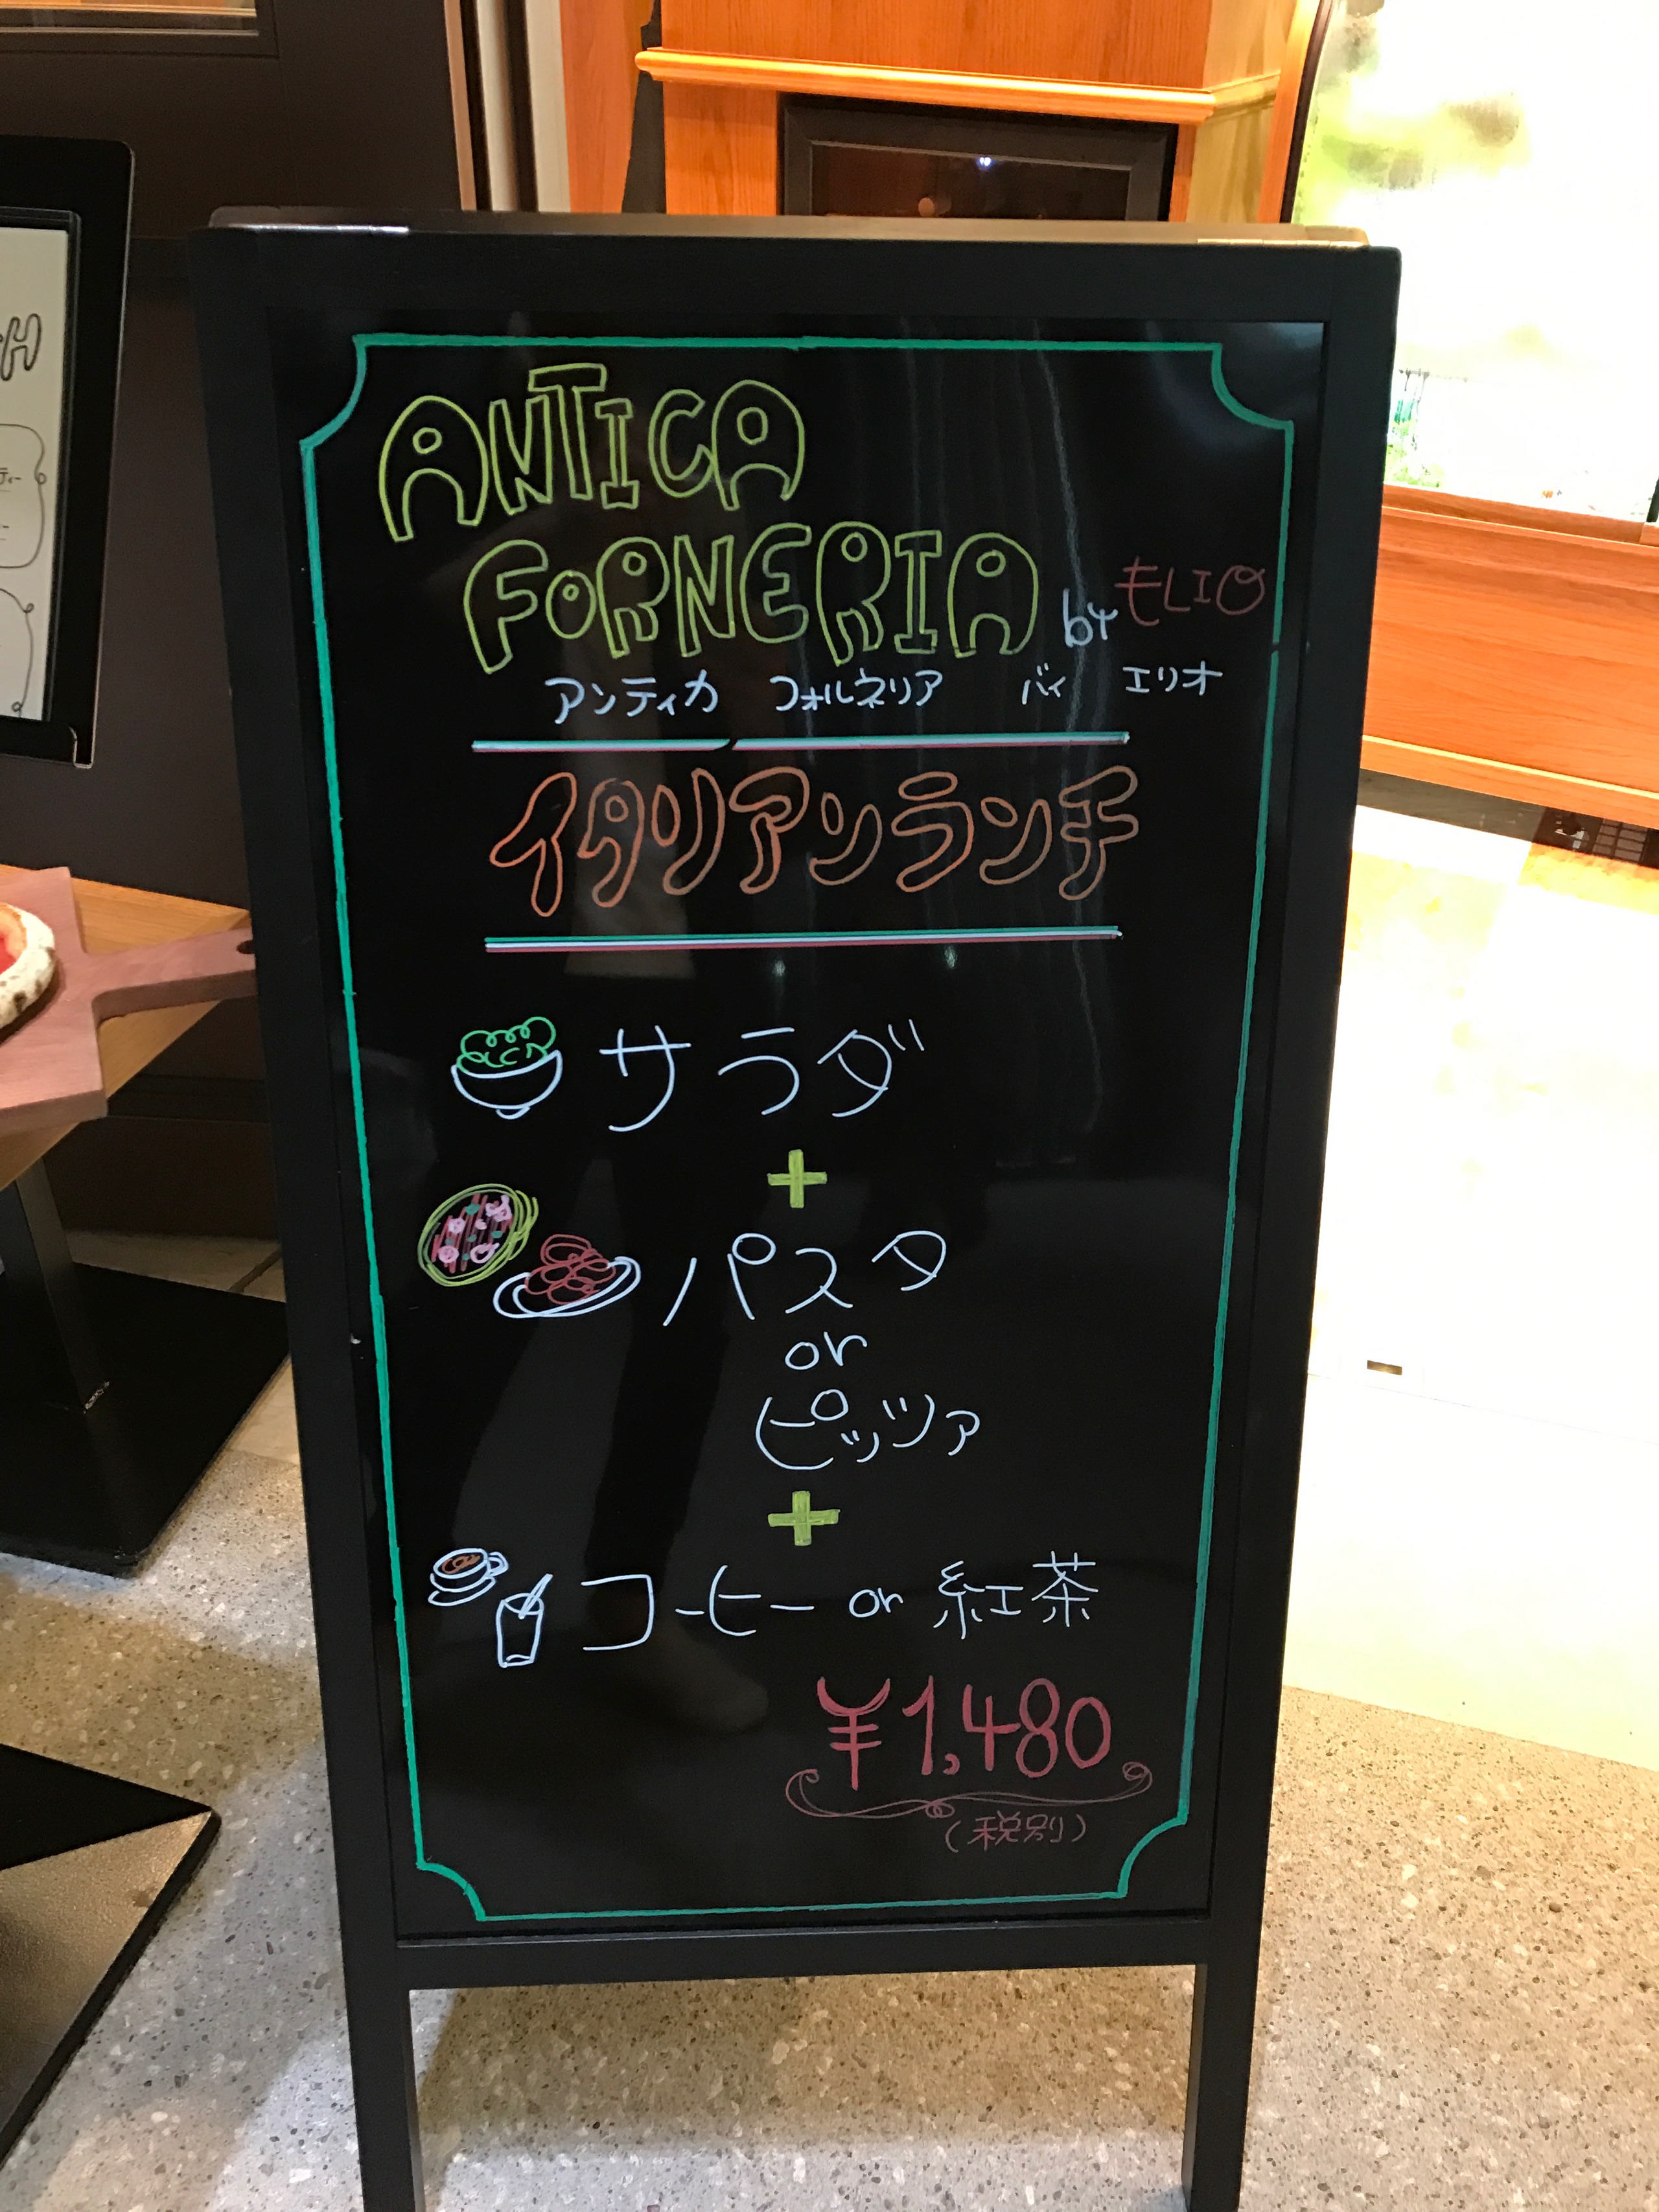 ANTICA
FORNERIA by ELIO
アンティカ フォルネリア バイ エリオ
イタリアンランチ
サラダ
+
パスタ
or
ピッツァ
+
コーヒー or 紅茶
¥1,480
(税別)